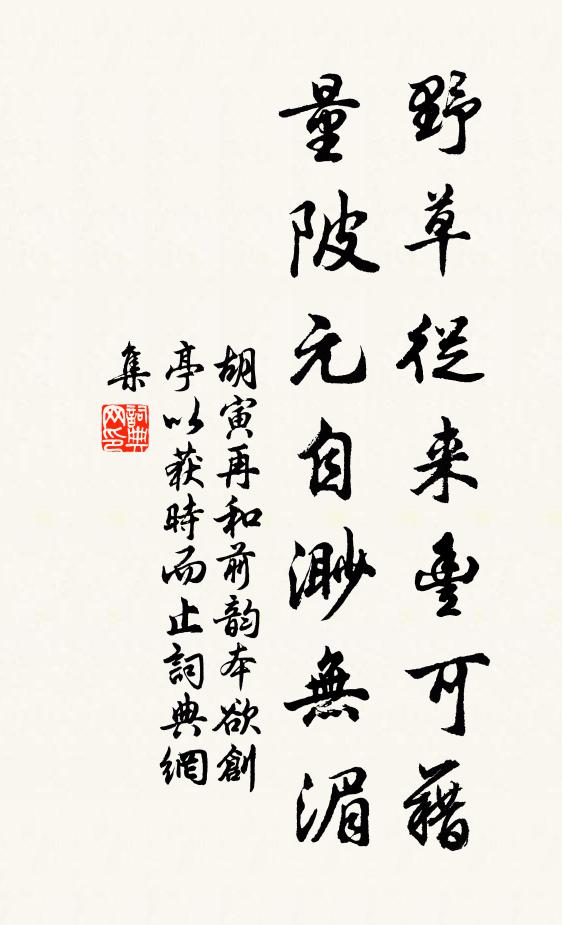 野草從来豊可藉
量陂元自渺無湄
胡寅再和前韵本欲創
亭以获時而止詞典網
集
詞典网印